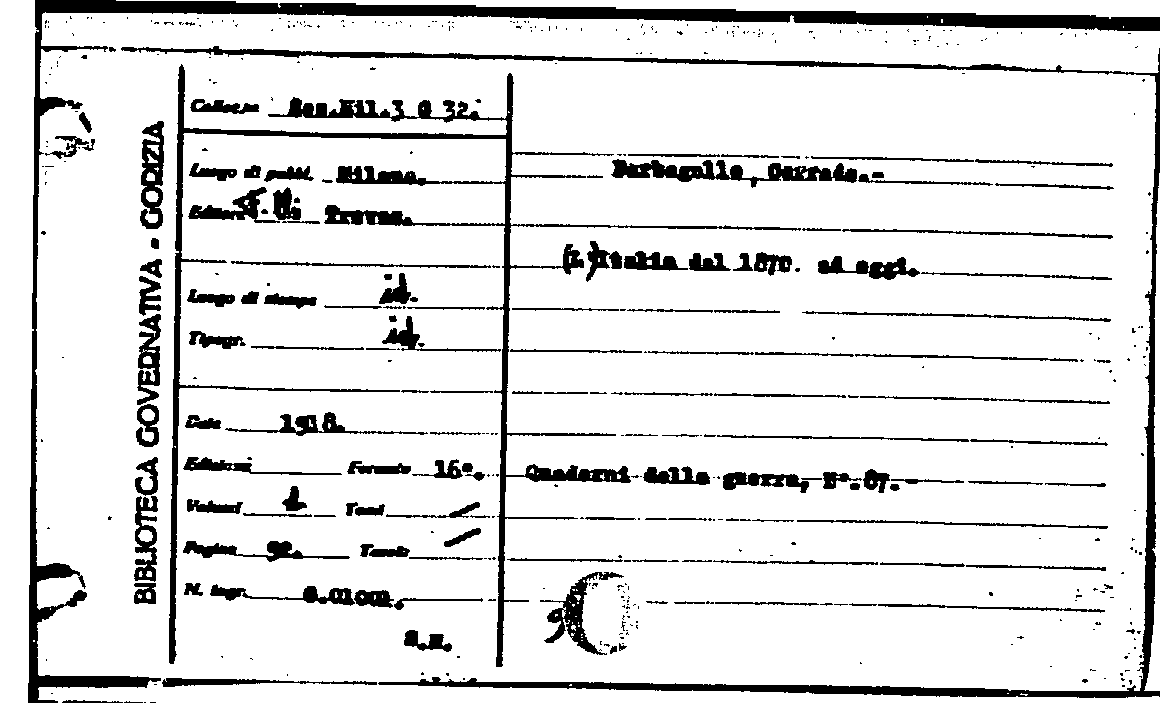 BIBLIOTECA GOVERNATIVA - GORIZIA
Collocaz. Sen.Mil.3 G 32.
Luogo di pubbl. Milano.
Editore Treves.
Luogo di stampa id.
Tipogr. id.
Data 1918.
Edizione Formato 16°.
Volumi 1 Tomi /
Pagine 92. Tavole /
N. ingr.
Barbagallo, Corrado.-
(L')Italia dal 1870. ad oggi.
Quaderni della guerra, N°.87.-